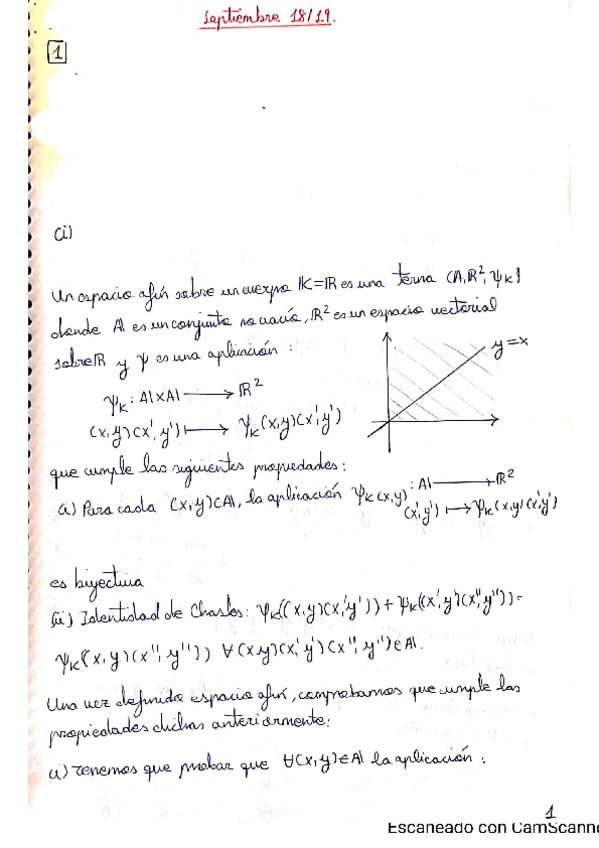 Septiembre 18/19.
1
(i)
Un espacio afín sobre un cuerpo K=R es una terna (A, R², ψk)
donde A es un conjunto no vacío, R² es un espacio vectorial
sobre R y ψ es una aplicación:
y=x
ψk: A×A → R²
(x,y)(x',y') ↦ ψk(x,y)(x',y')
que cumple las siguientes propiedades:
a) Para cada (x,y)∈A, la aplicación ψk(x,y): A → R²
(x',y') ↦ ψk(x,y)(x',y')
es biyectiva
(ii) Identidad de Chasles: ψk((x,y)(x',y')) + ψk((x',y')(x'',y'')) =
ψk((x,y)(x'',y'')) ∀(x,y)(x',y')(x'',y'')∈A.
Una vez definido espacio afín, comprobamos que cumple las
propiedades dichas anteriormente:
Tenemos que probar que ∀(x,y)∈A la aplicación:
1
Escaneado con CamScanne